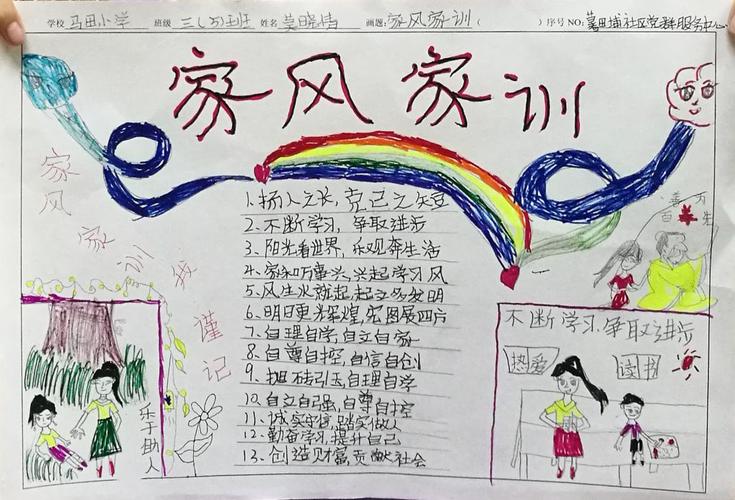 学校 马田小学 班级 三(5)班 姓名 莫晓情 画题: 家风家训 ( ) 序号 NO: 葛田埔社区党群服务中心
家风家训
家风家训我谨记
1.扬人之长,克己之短
2.不断学习,争取进步
3.阳光看世界,乐观奔生活
4.家和万事兴,兴起学习风
5.风生水就起,起立多发明
6.明日更光辉煌,宏图展四方
7.自理自学,自立自家
8.自尊自控,自信自创
9.抛砖引玉,自理自学
10.自立自强,自尊自控
11.诚实守信,踏实做人
12.勤奋学习,提升自己
13.创造财富贡献社会
百善
万生
乐于助人
不断学习,争取进步
热爱
读书